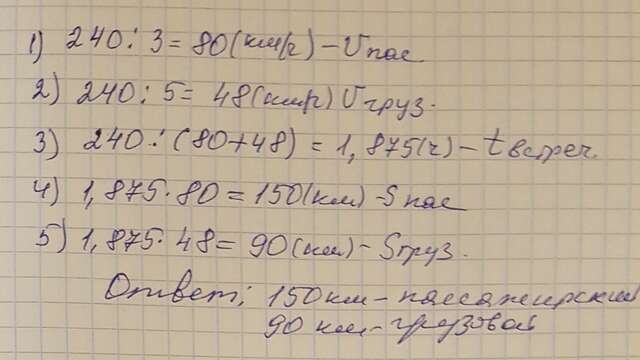 1) 240 : 3 = 80 (км/г) - Vпас
2) 240 : 5 = 48 (км/г) Vгруз.
3) 240 : (80+48) = 1,875 (г) - tвстреч.
4) 1,875 · 80 = 150 (км) - Sпас
5) 1,875 · 48 = 90 (км) - Sгруз.
Ответ; 150 км - пассажирский
90 км - грузовой